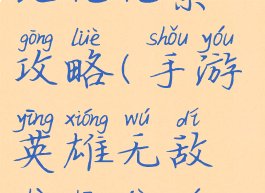 gōng lüè shǒu yóu
攻略(手游
yīng xióng wú dí
英雄无敌